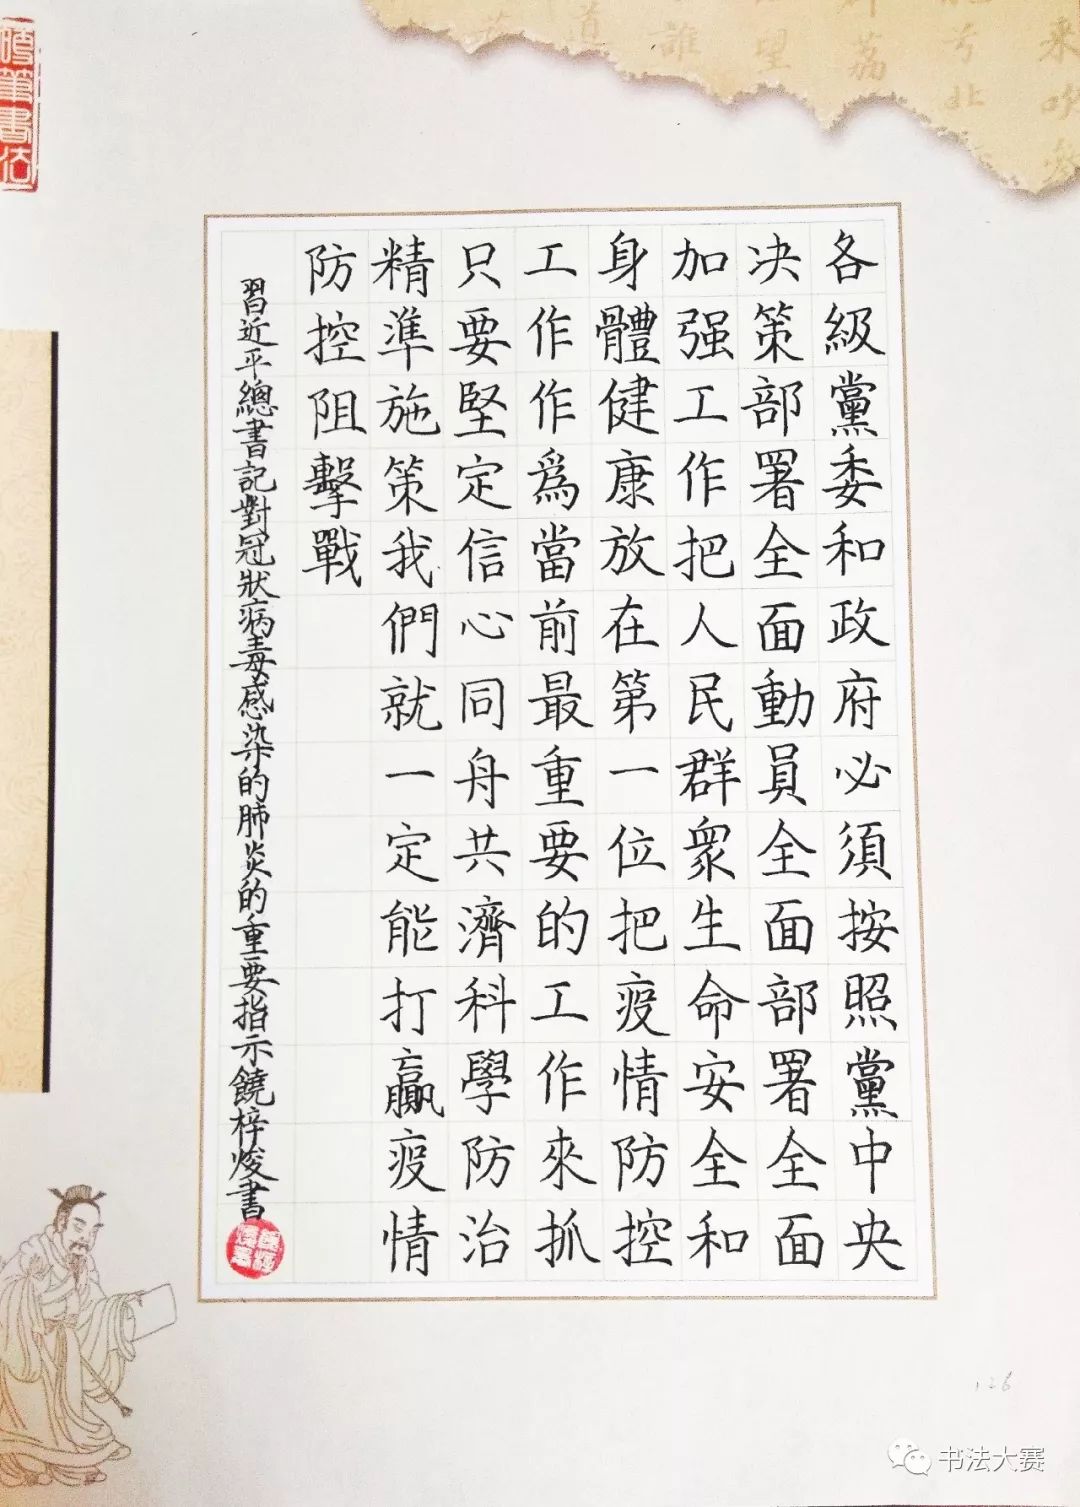 各級黨委和政府必須按照黨中央
决策部署全面動員全面部署全面
加强工作把人民群衆生命安全和
身體健康放在第一位把疫情防控
工作作爲當前最重要的工作來抓
只要堅定信心同舟共濟科學防治
精準施策我們就一定能打贏疫情
防控阻擊戰
習近平總書記對冠狀病毒感染的肺炎的重要指示饒梓焌書
硬筆書法
126
书法大赛